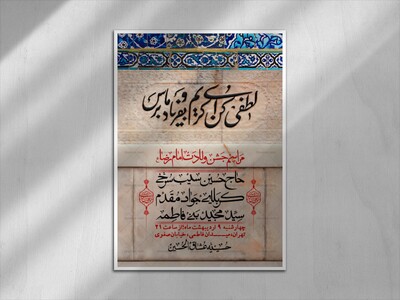 لطفی کن ای کریم و بفریاد ما برس
مراسم جشن ولادت امام رضا
حاج حسین سیب سرخی
کربلایی جواد مقدم
سید مجید بنی فاطمه
چهارشنبه ۹ اردیبهشت ماه از ساعت ۲۱
تهران، میدان فاطمی، خیابان صفوی
حسینیه عشاق الحسین